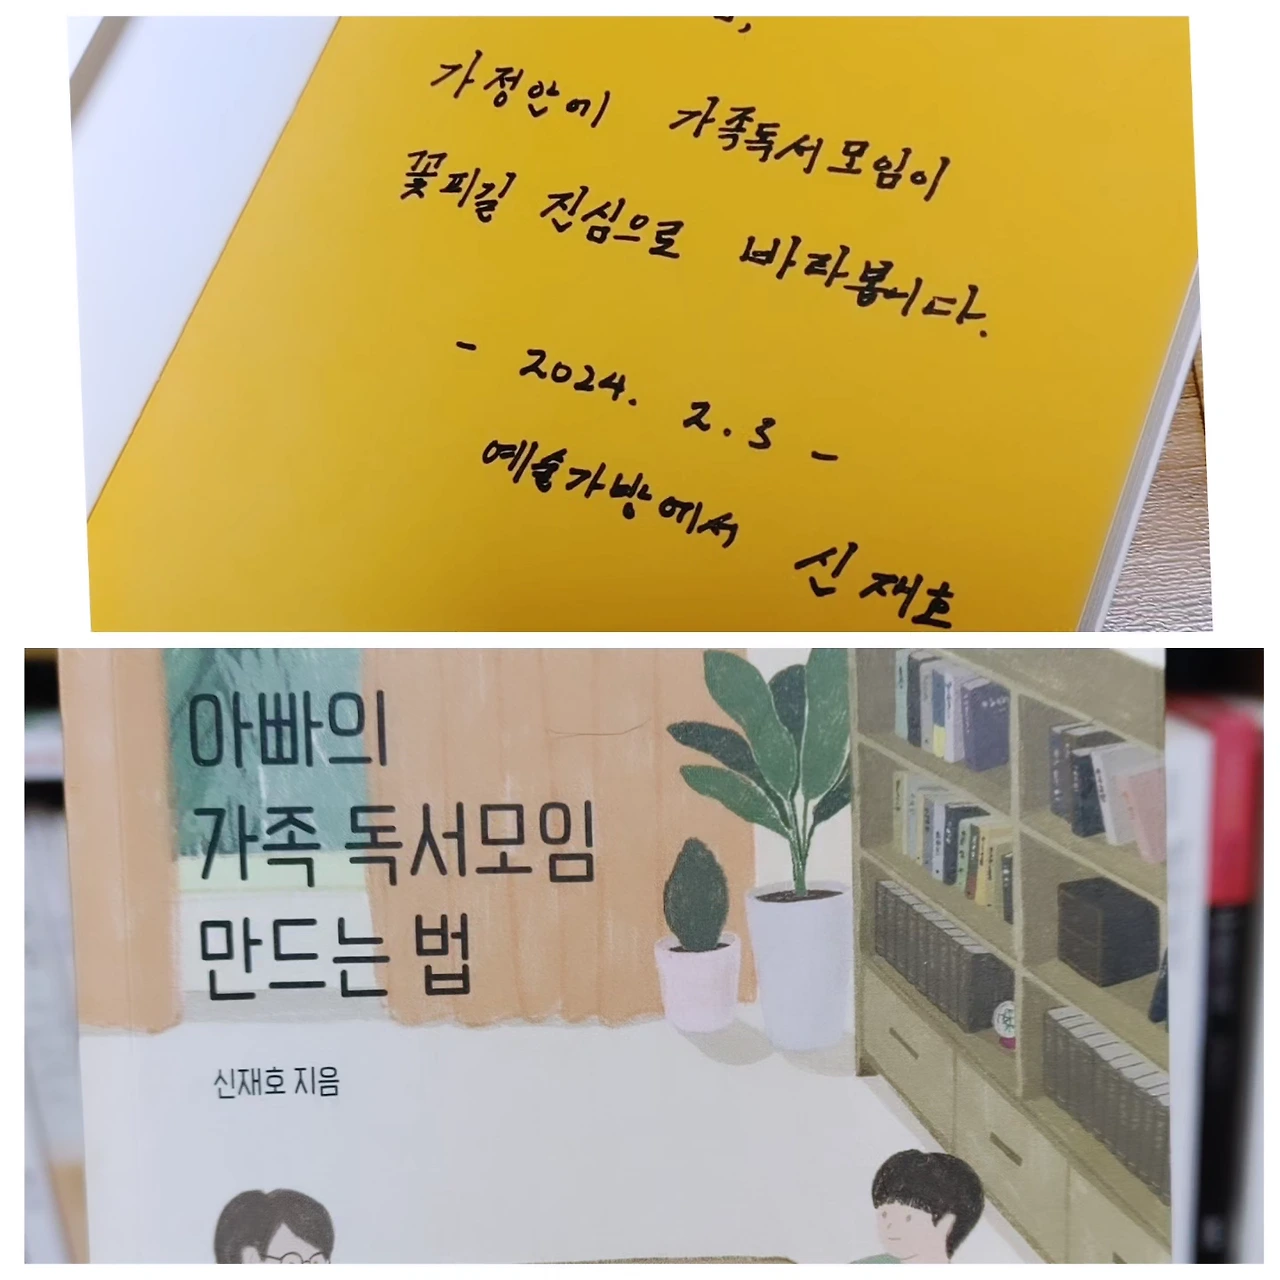 가정안에 가족독서모임이
꽃피길 진심으로 바라봅니다.
- 2024. 2. 3 -
예술가방에서 신재호
아빠의
가족 독서모임
만드는 법
신재호 지음